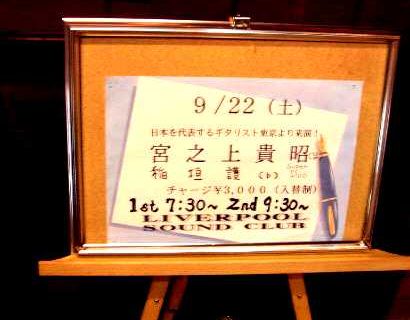 9/22（土）
日本を代表するギタリスト東京より来演！
宮之上貴昭(G)
稲垣護(b) Super Duo
チャージ¥3,000（入替制）
1st 7:30〜 2nd 9:30〜
LIVERPOOL
SOUND CLUB